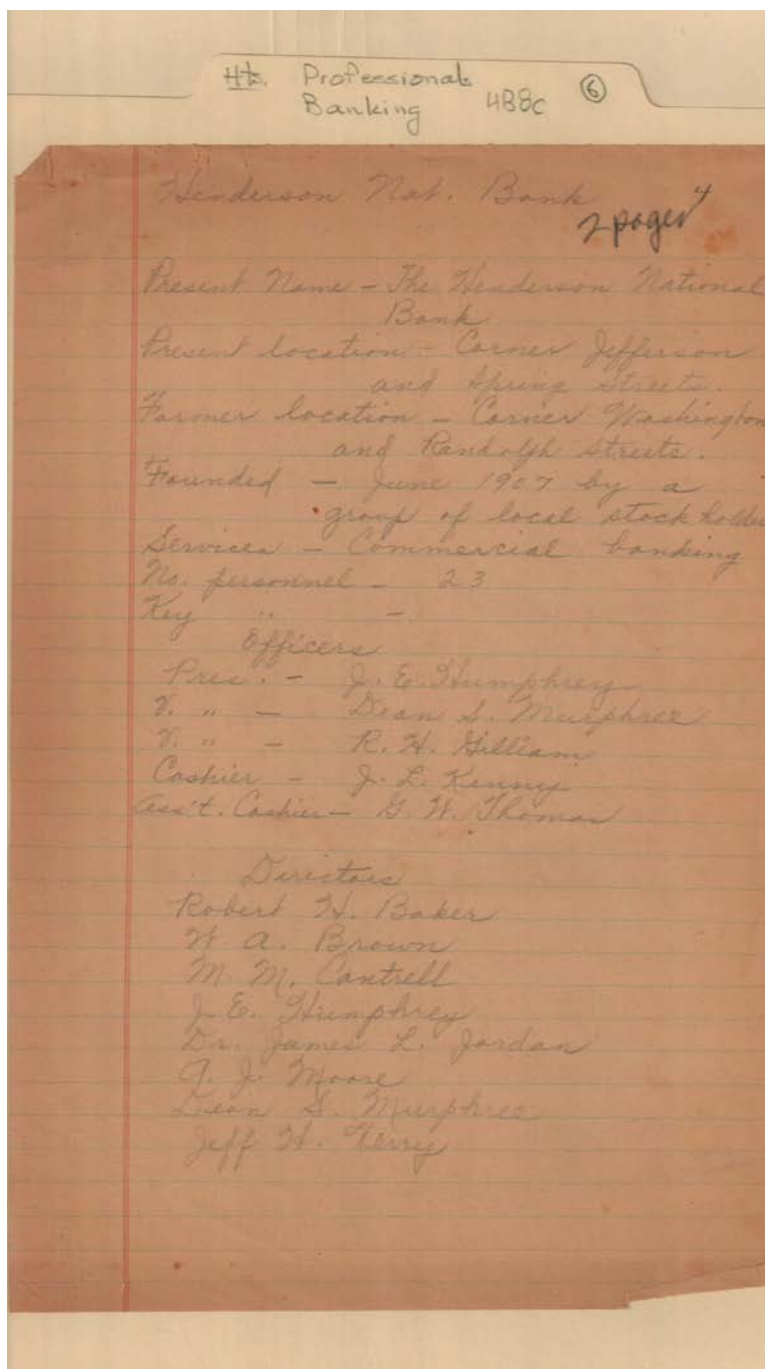 Hts. Professionals ⑥
Banking 4B8c
Henderson Nat. Bank
4
2 pages
Present Name - The Henderson National
Bank
Present location - Corner Jefferson
and Spring Streets.
Former location - Corner Washington
and Randolph Streets.
Founded - June 1907 by a
group of local stock holder
Services - Commercial banking
No. personnel - 23
Key " -
Officers
Pres. - J. E. Humphrey
V. " - Dean S. Murphree
V. " - R. H. Gilliam
Cashier - J. L. Kenny
Ass't. Cashier - G. W. Thomas
Directors
Robert H. Baker
W. A. Brown
M. M. Cantrell
J. E. Humphrey
Dr. James L. Jordan
A. J. Moore
Dean S. Murphree
Jeff H.